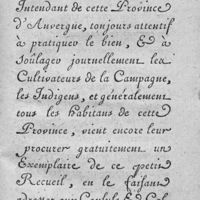 Intendant de cette Province
d'Auvergne, toujours attentif
à pratiquer le bien, & à
soulager journellement les
Cultivateurs de la Campagne,
les Indigens, et généralement
tous les habitans de cette
Province, vient encore leur
procurer gratuitement un
Exemplaire de ce petit
Recueil, en le faisant